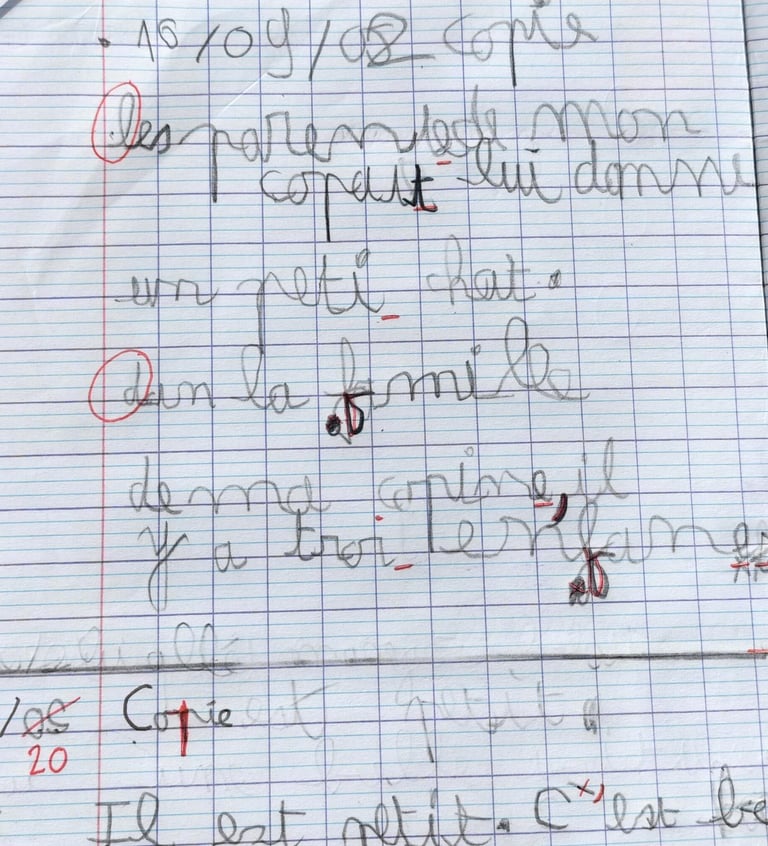 . 16/09/02 Copie
les parents de mon
copait lui donne
un peti chat.
dan la famille
de ma copine, il
y a troi enfan
/05 Copie
20
Il est petit. C'est be